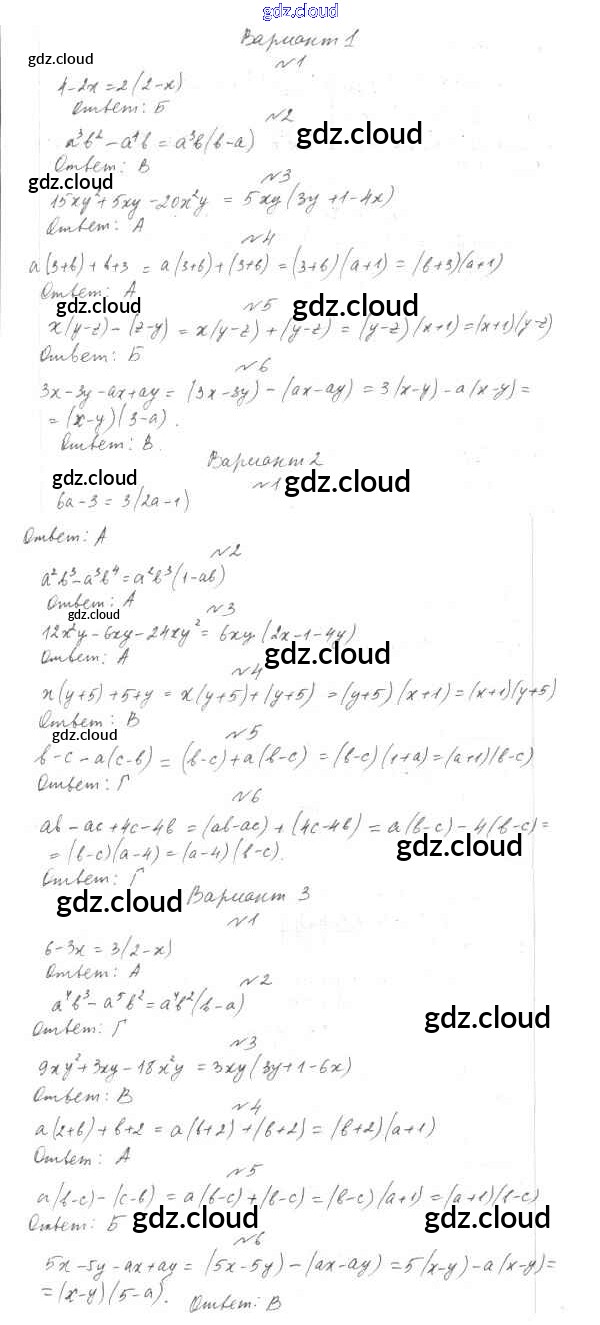 gdz.cloud
Вариант 1
gdz.cloud
№1
4-2x=2(2-x)
Ответ: Б
№2
a³b²-a⁴b=a³b(b-a) gdz.cloud
Ответ: В
gdz.cloud
№3
15xy²+5xy-20x²y = 5xy(3y+1-4x)
Ответ: А
№4
a(3+b)+b+3 = a(3+b)+(3+b) = (3+b)(a+1) = (b+3)(a+1)
Ответ: А
gdz.cloud №5 gdz.cloud
x(y-z)-(z-y) = x(y-z)+(y-z) = (y-z)(x+1)=(x+1)(y-z)
Ответ: Б
№6
3x-3y-ax+ay = (3x-3y)-(ax-ay) = 3(x-y)-a(x-y)=
=(x-y)(3-a).
Ответ: В.
Вариант 2
gdz.cloud №1 gdz.cloud
6a-3=3(2a-1)
Ответ: А
№2
a²b³-a³b⁴=a²b³(1-ab)
Ответ: А
gdz.cloud №3
12x²y-6xy-24xy²=6xy(2x-1-4y)
Ответ: А gdz.cloud
№4
x(y+5)+5+y = x(y+5)+(y+5) = (y+5)(x+1) = (x+1)(y+5)
Ответ: В
gdz.cloud №5
b-c-a(c-b) = (b-c)+a(b-c) = (b-c)(1+a)=(a+1)(b-c)
Ответ: Г
№6
ab-ac+4c-4b = (ab-ac)+(4c-4b) = a(b-c)-4(b-c)=
=(b-c)(a-4)=(a-4)(b-c). gdz.cloud
Ответ: Г
gdz.cloud Вариант 3
№1
6-3x = 3(2-x)
Ответ: А
№2
a⁴b³-a⁵b²=a⁴b²(b-a)
Ответ: Г gdz.cloud
№3
9xy²+3xy-18x²y = 3xy(3y+1-6x)
Ответ: В
№4
a(2+b)+b+2 = a(b+2)+(b+2) = (b+2)(a+1)
Ответ: А
№5
a(b-c)-(c-b) = a(b-c)+(b-c) = (b-c)(a+1) = (a+1)(b-c)
Ответ: Б gdz.cloud gdz.cloud
№6
5x-5y-ax+ay = (5x-5y)-(ax-ay) = 5(x-y)-a(x-y)=
=(x-y)(5-a). Ответ: В